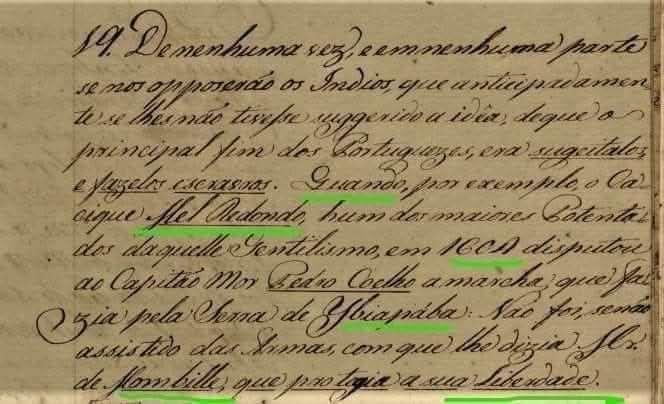 19. De nenhuma vez, e em nenhuma parte
se nos opposerão os Indios, que anticipadamen-
te se lhes não tivesse suggerido a idêa, de que o
principal fim dos Portuguezes, era sugeitalos,
e fazelos escravos. Quando, por exemplo, o Ca-
cique Mel Redondo, hum dos maiores Potenta-
dos daquelle Gentilismo, em 1604 disputou
ao Capitão Mor Pedro Coelho a marcha, que fa-
zia pela Serra de Ybiapába: Não foi, senão
assistido das Armas, com que lhe dizia Mr.
de Mombille, que protegia a sua Liberdade.